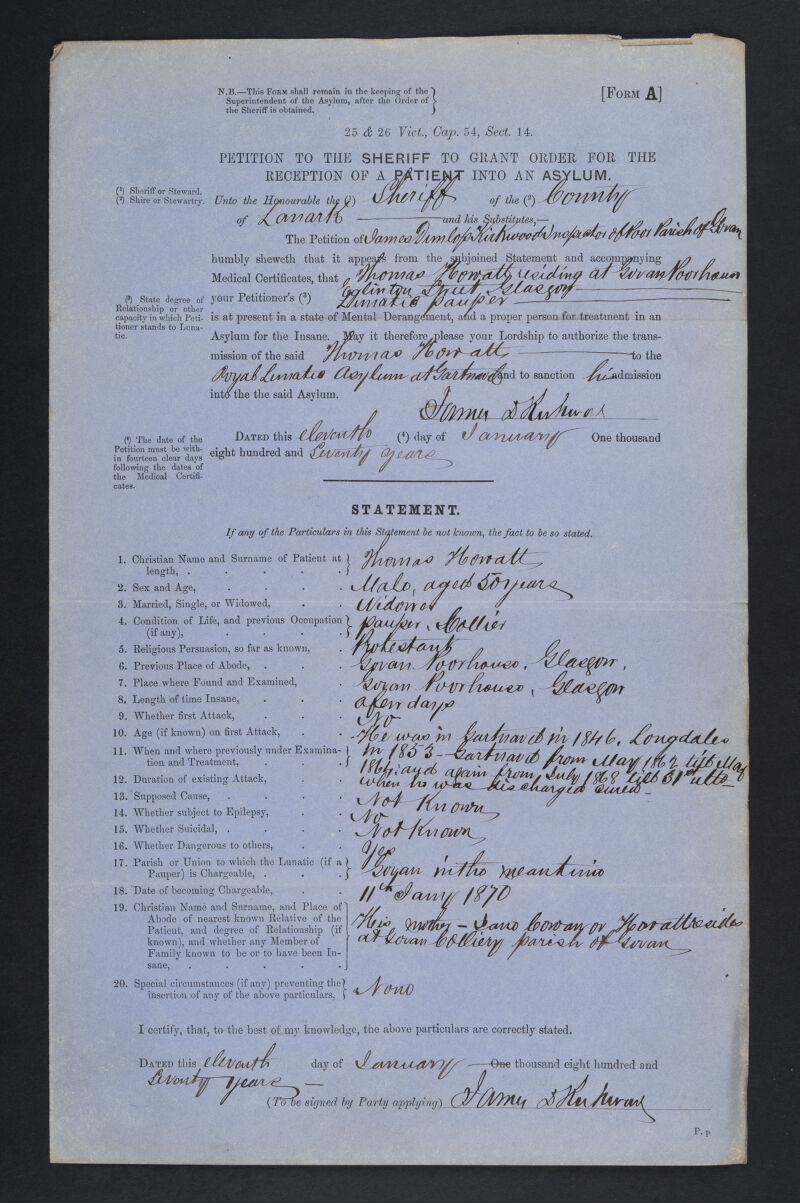 N.B.—This Form shall remain in the keeping of the
Superintendent of the Asylum, after the Order of
the Sheriff is obtained.
[Form A]
25 & 26 Vict., Cap. 54, Sect. 14.
PETITION TO THE SHERIFF TO GRANT ORDER FOR THE
RECEPTION OF A PATIENT INTO AN ASYLUM.
(1) Sheriff or Steward.
(2) Shire or Stewartry.
Unto the Honourable the (1) Sheriff of the (2) County
of Lanark and his Substitutes,—
The Petition of James Dunlop Kirkwood Inspector of Poor Parish of Govan
humbly sheweth that it appears from the subjoined Statement and accompanying
Medical Certificates, that Thomas Howatt residing at Govan Poorhouse
Eglinton Street, Glasgow
(3) State degree of
Relationship or other
capacity in which Peti-
tioner stands to Luna-
tic.
your Petitioner's (3) Lunatic pauper
is at present in a state of Mental Derangement, and a proper person for treatment in an
Asylum for the Insane. May it therefore please your Lordship to authorize the trans-
mission of the said Thomas Howatt to the
Royal Lunatic Asylum at Gartnavel and to sanction his admission
into the the said Asylum.
James D Kirkwood
(4) The date of the
Petition must be with-
in fourteen clear days
following the dates of
the Medical Certifi-
cates.
Dated this eleventh (4) day of January One thousand
eight hundred and Seventy years
STATEMENT.
If any of the Particulars in this Statement be not known, the fact to be so stated.
1. Christian Name and Surname of Patient at
length, . . . . . Thomas Howatt
2. Sex and Age, . . . . Male, aged 50 years
3. Married, Single, or Widowed, . . Widower
4. Condition of Life, and previous Occupation
(if any), . . . . . pauper, Collier
5. Religious Persuasion, so far as known, . Protestant
6. Previous Place of Abode, . . . Govan Poorhouse, Glasgow,
7. Place where Found and Examined, . Govan Poorhouse, Glasgow
8. Length of time Insane, . . . a few days
9. Whether first Attack, . . . No
10. Age (if known) on first Attack, . . He was in Gartnavel in 1846, Longdales
11. When and where previously under Examina-
tion and Treatment, . . . in 1853 - Gartnavel from May 1862 till May
1864; and again from July 1868 till 31st ulto
12. Duration of existing Attack, . . when he was discharged cured -
13. Supposed Cause, . . . . Not Known
14. Whether subject to Epilepsy, . . No
15. Whether Suicidal, . . . . Not Known
16. Whether Dangerous to others, . . Yes
17. Parish or Union to which the Lunatic (if a
Pauper) is Chargeable, . . . Govan in the meantime
18. Date of becoming Chargeable, . . 11th Jany 1870
19. Christian Name and Surname, and Place of
Abode of nearest known Relative of the
Patient, and degree of Relationship (if
known), and whether any Member of
Family known to be or to have been In-
sane, . . . . .
His mother - Jane Cowan or Howatt resides
at Govan Colliery parish of Govan
20. Special circumstances (if any) preventing the
insertion of any of the above particulars, None
I certify, that, to the best of my knowledge, the above particulars are correctly stated.
Dated this eleventh day of January One thousand eight hundred and
Seventy years
(To be signed by Party applying) James D Kirkwood
P. p